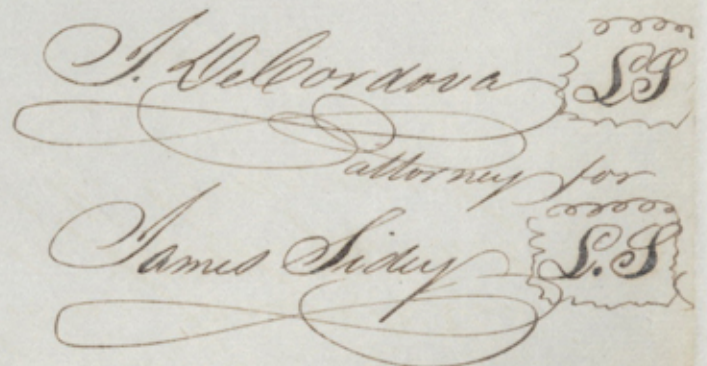 J. DeCordova LS
attorney for
James Sidey L.S